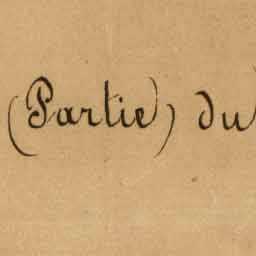 (Partie) du